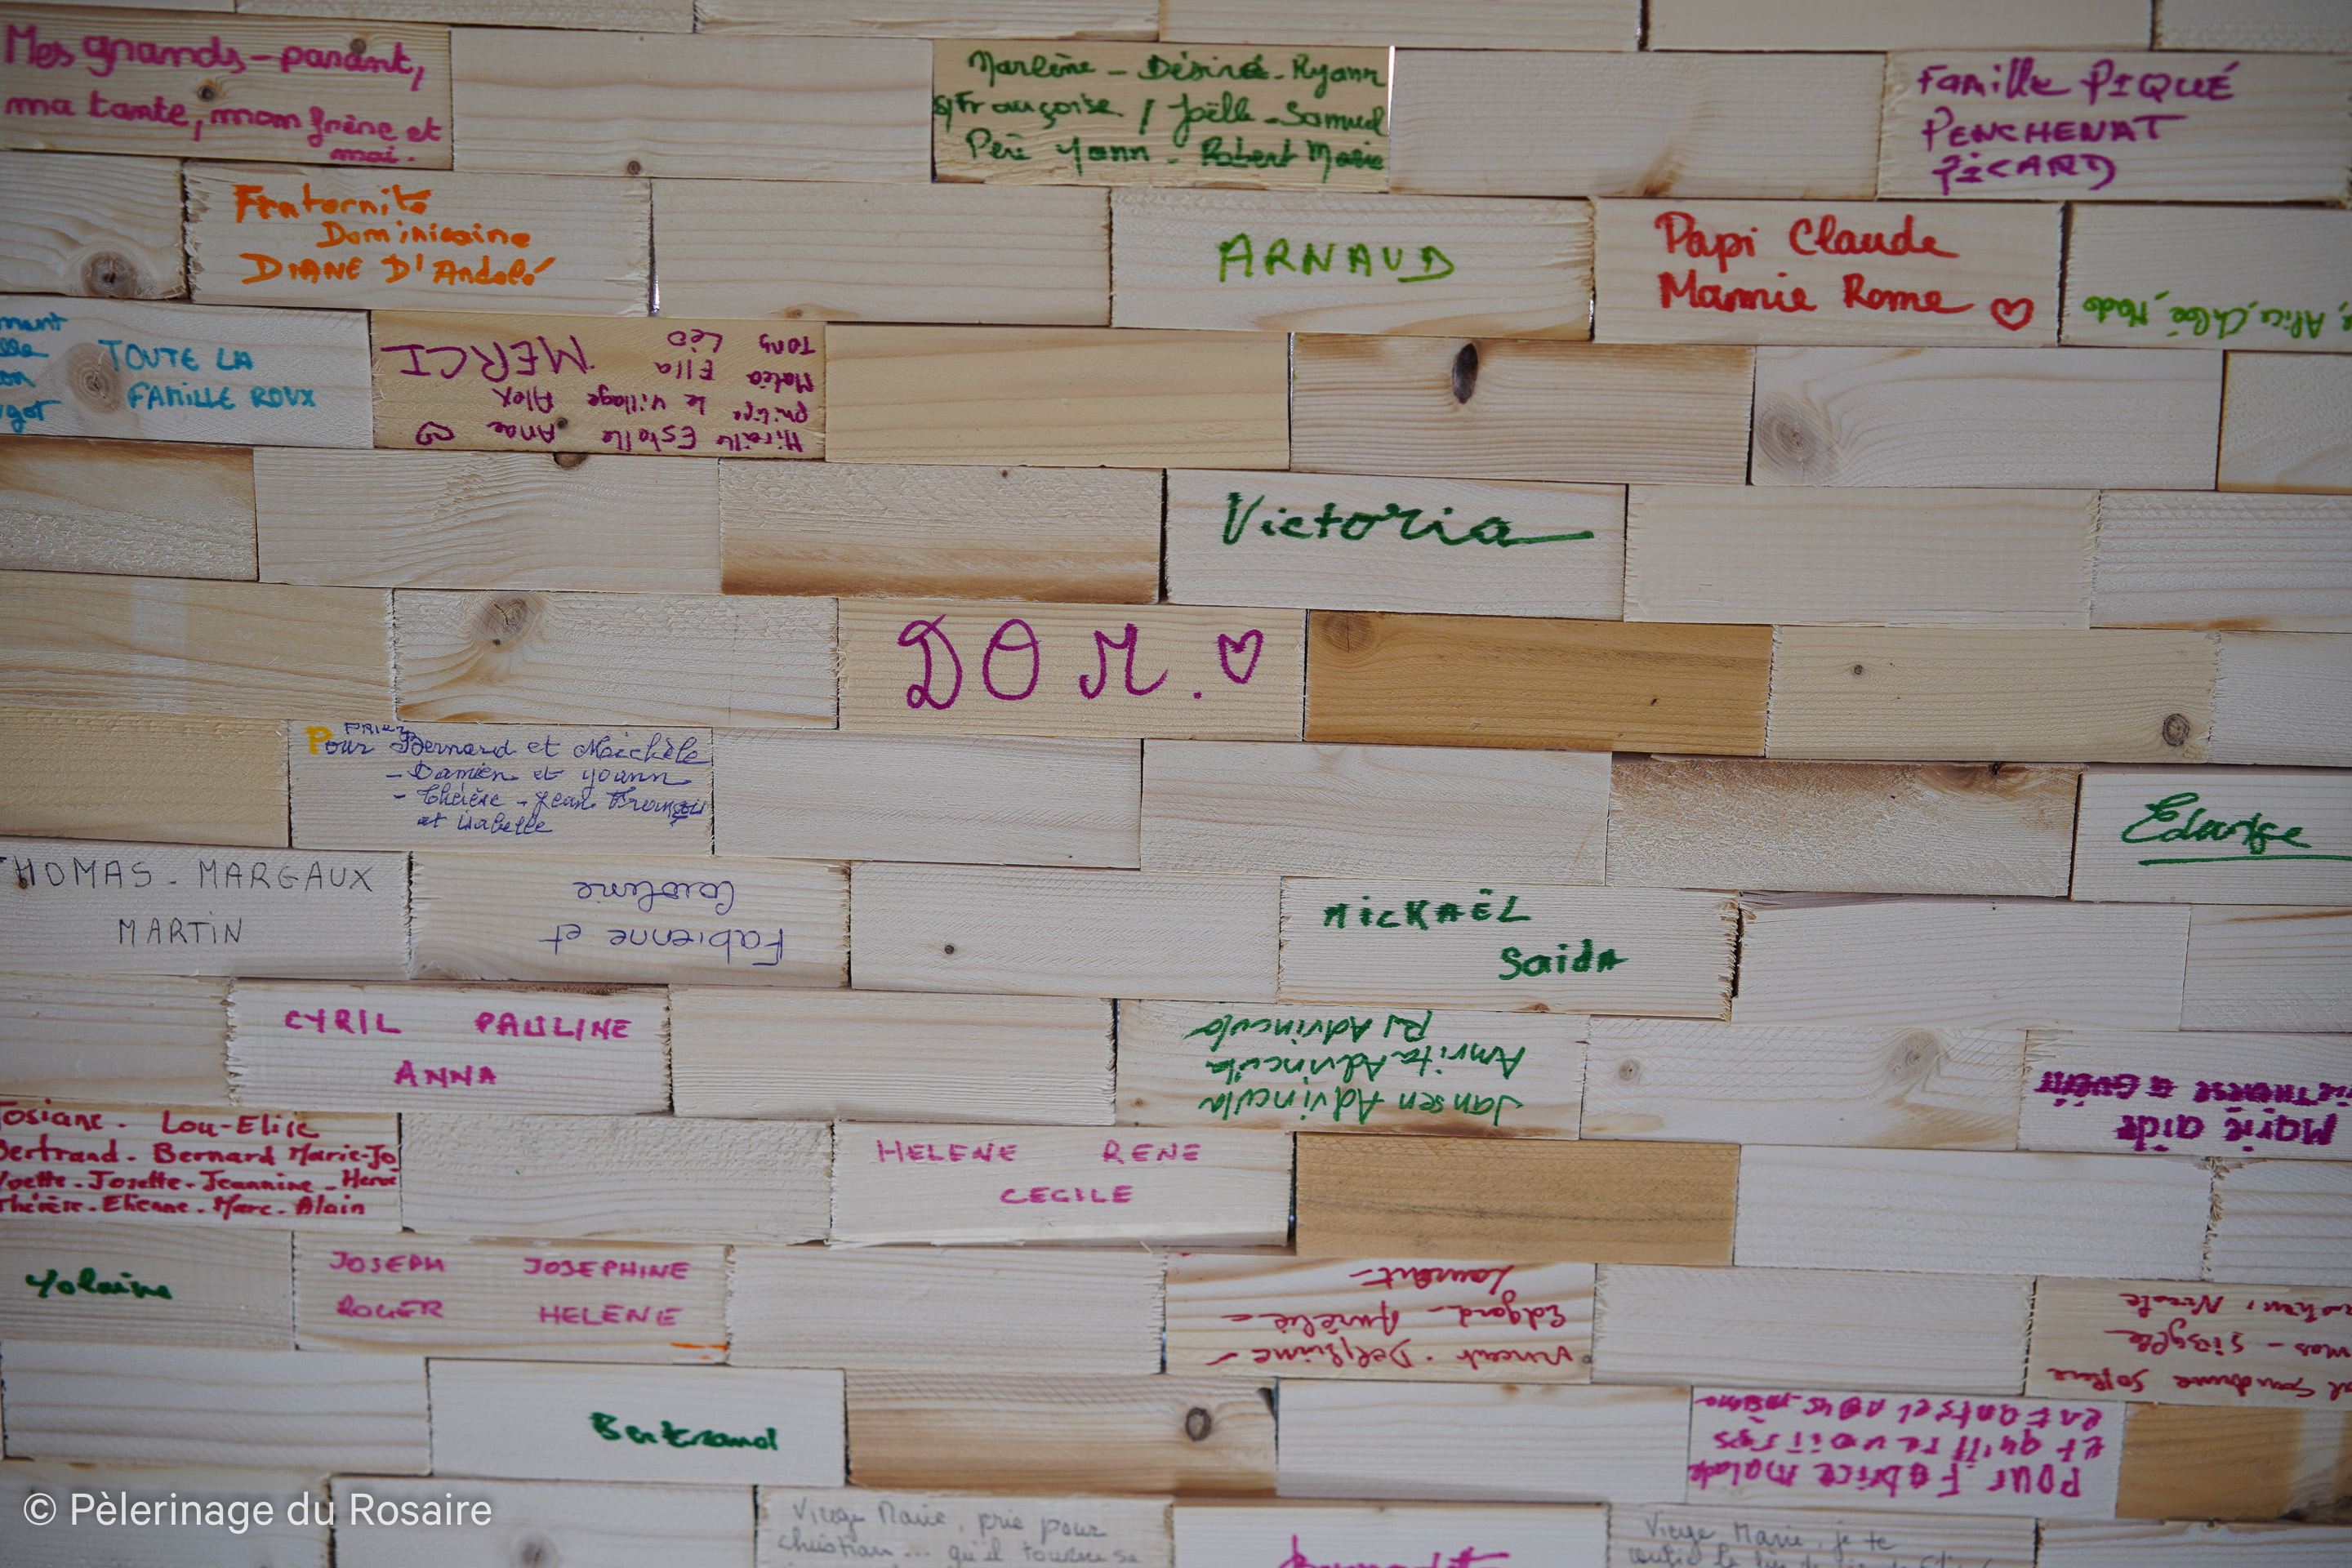 Mes grands-parant,
ma tante, mon frère et
moi.
Marlène - Désirée - Ryann
Françoise / Joëlle - Samuel
Père Yann - Robert Marie
Famille PIQUÉ
PENCHENAT
PICARD
Fraternité
Dominicaine
DIANE D'Andaló
ARNAUD
Papi Claude
Mamie Rome ♡
Alice, Chloé, Mado
TOUTE LA
FAMILLE ROUX
Miraille Estelle Anae ♡
le village Alex
Matéo Ella MERCI
Tony Léo
Victoria
DOM. ♡
Prier
Pour Bernard et Michèle
- Damien et Yoann
- Thérèse - Jean François
et Isabelle
THOMAS - MARGAUX
MARTIN
Fabienne et
Caroline
MICKAËL
Saida
CYRIL PAULINE
ANNA
Jansen Advincula
Amrita Advincula
RJ Advincula
Marie aide
Josiane - Lou-Elise
Bertrand - Bernard Marie-Jo
Yvette - Josette - Jeannine - Hervé
Thérèse - Etienne - Marc - Alain
HELENE RENE
CECILE
Yolaine
JOSEPH JOSEPHINE
ROGER HELENE
Vincent - Delphine -
Edgard - Aurélie -
Laurent -
Sandrine Solène
Nicole
Bertrand
POUR Fabrice malade
et qu'il revoit ses
enfants et nous même
Vierge Marie, prie pour
christian... qu'il tourne sa
Vierge Marie, je te
© Pèlerinage du Rosaire